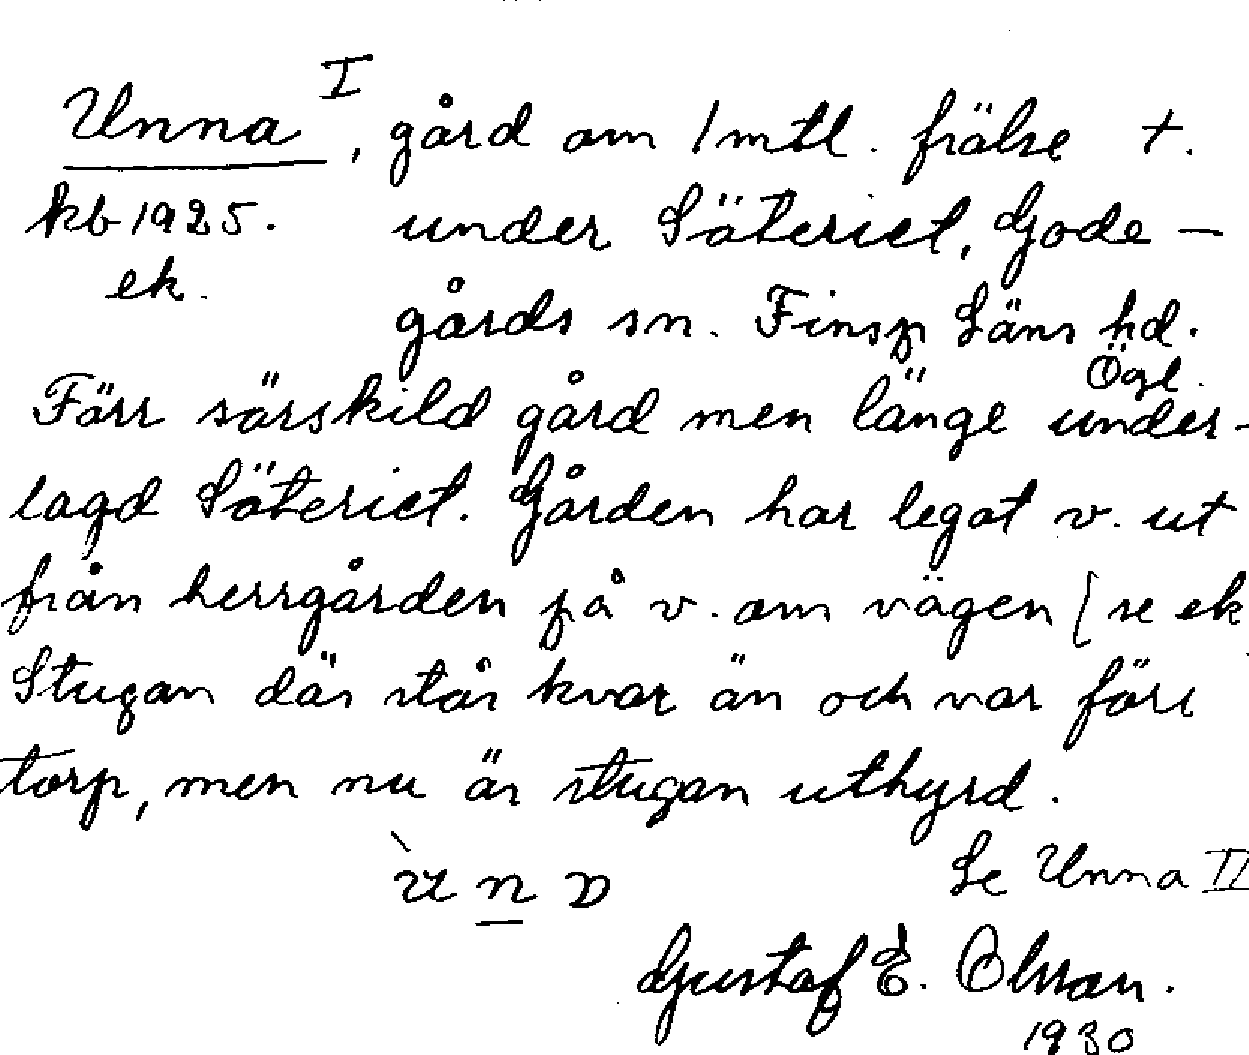 Unna I, gård om 1 mtl. frälse +.
kb 1925. under Säteriet, Gode-
ek. gårds sn. Finsp Läns hd.
Ögl.
Förr särskild gård men länge under-
lagd Säteriet. Gården har legat v. ut
från herrgården på v. om vägen [se ek
Stugan där står kvar än och var förr
torp, men nu är stugan uthyrd.
Se Unna II
Gustaf E. Olsson.
1930